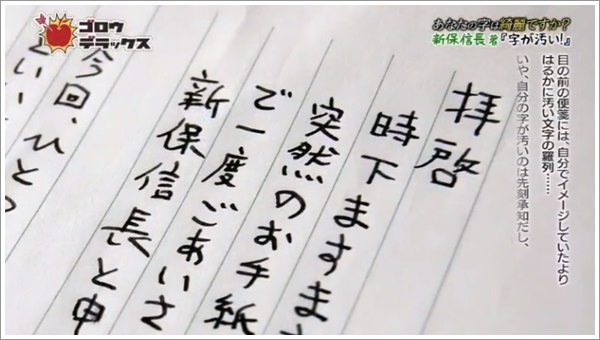 ゴロウ
デラックス
あなたの字は綺麗ですか?
新保信長著『字が汚い!』
目の前の便箋には、自分でイメージしていたより
はるかに汚い文字の羅列……
いや、自分の字が汚いのは先刻承知だし、
拝啓
時下ますま
突然のお手紙
で一度ごあいさ
新保信長と申
今回、ひとつ
といい